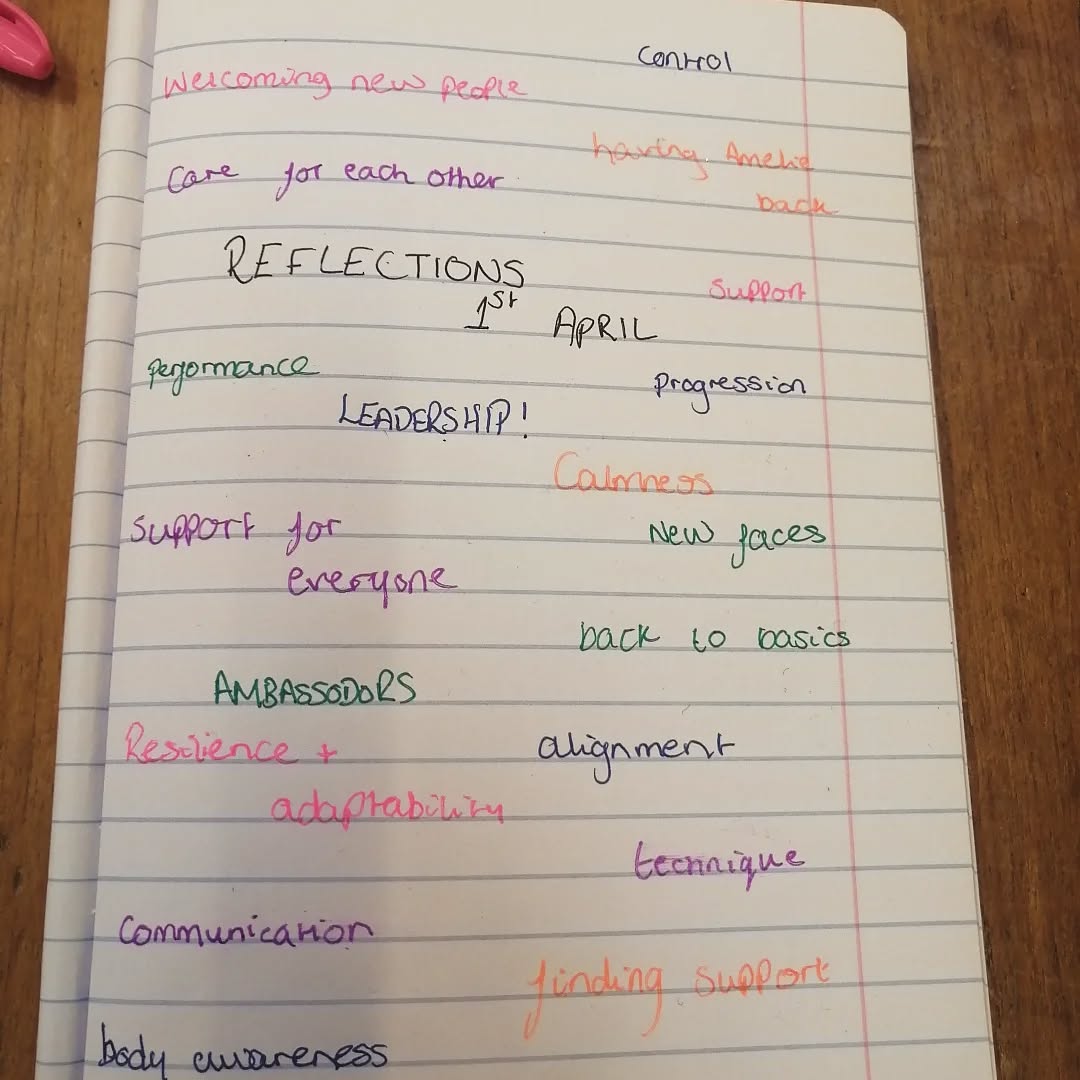 Control
Welcoming new people
having Amelie
care for each other
back
REFLECTIONS
Support
1st APRIL
performance
progression
LEADERSHIP!
Calmness
support for
New faces
everyone
back to basics
AMBASSODORS
Resilience +
alignment
adaptability
technique
Communication
finding support
body awareness